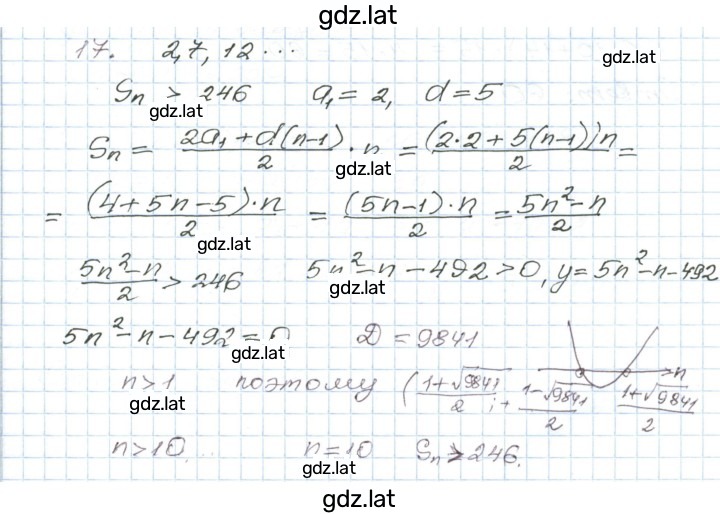 gdz.lat
17. 2,7, 12 ...
gdz.lat
Sn > 246 a₁ = 2, d = 5
gdz.lat
Sn = (2a₁ + d(n-1))/2 · n = ((2·2 + 5(n-1))n)/2 =
gdz.lat
= ((4+5n-5)·n)/2 = ((5n-1)·n)/2 = (5n²-n)/2
gdz.lat
(5n²-n)/2 > 246 5n²-n-492>0, y = 5n²-n-492
gdz.lat
5n²-n-492=0 D = 9841
gdz.lat
n>1 поэтому ((1+√9841)/2 ; + (1-√9841)/2 (1+√9841)/2 n
gdz.lat
n>10... n=10 Sn > 246.
gdz.lat
gdz.lat